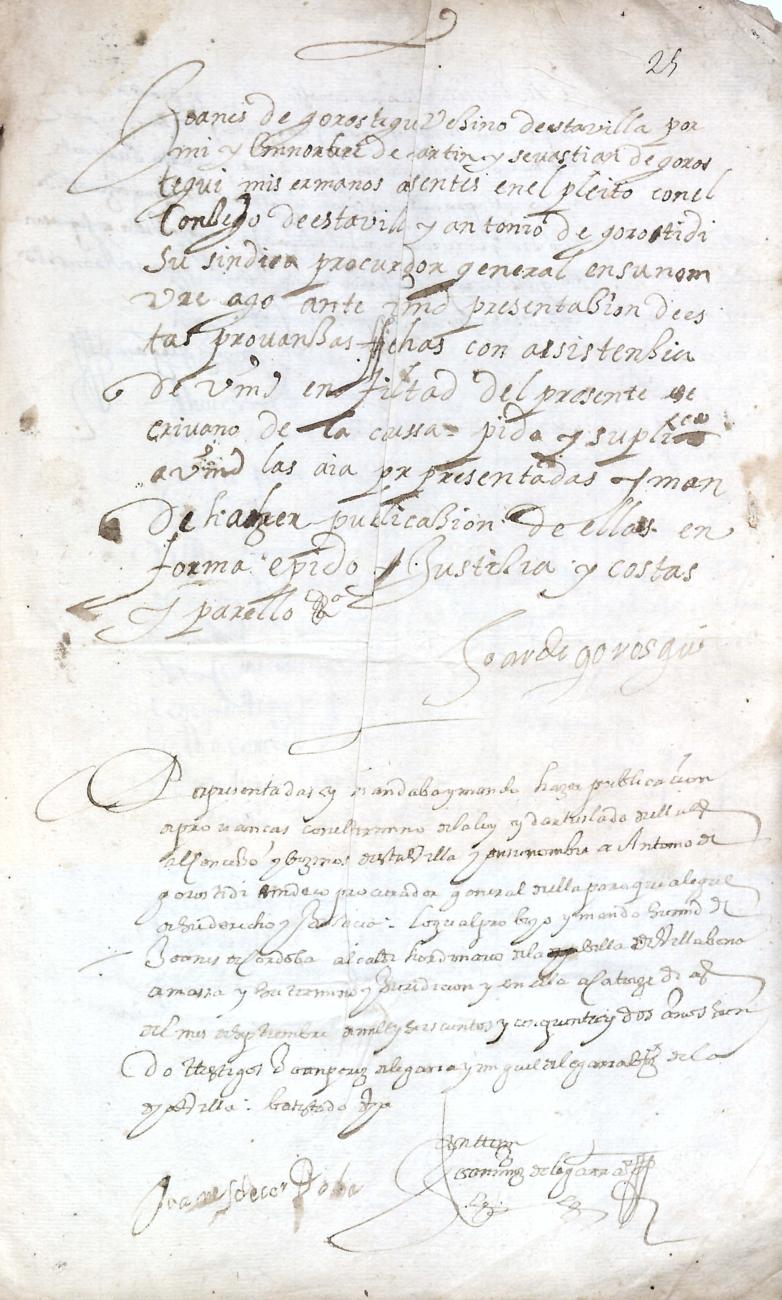 25
Joanes de gorostegui Vehino destavilla por
mi y en nonbre de martin y sevastian de goros
tegui mis ermanos asentes en el pleito con el
Conbejo de estavill y antonio de gorostidi
Su sindico procurdor general en su nom
vre ago ante vmd presentabion de es
tas provanhas ffehas con assistenhia
de vmd en filtad del presente es
crivano de la caussa pido y suplico
a vmd las aia pr presentadas y man
de haher publicabion de ellas en
forma e pido Justihia y costas
y para ello &
Joan de goros gui
Por presentadas y mandaba y mando hazer publicacion
de provancas con el termino de la ley y dar traslado de ella
al Concexo y vezinos desta Villa y en su nombre a Antonio de
gorostidi sindico procurador general de lla para que alegue
de su derecho y Justicia lo qual probeyo y mando su md de
Joanes de Cordoba alcalde hordinario de la Villa de Villabona
amassa y su termino y Juridicion y en ella a Catorze de
del mes de septiembre de mill y seiscientos y cinquenta y dos años sien
do testigos Joan perez de legarra y miguel de legarra de la
dha Villa
Joanes de cordoba
Ante my
de legarra